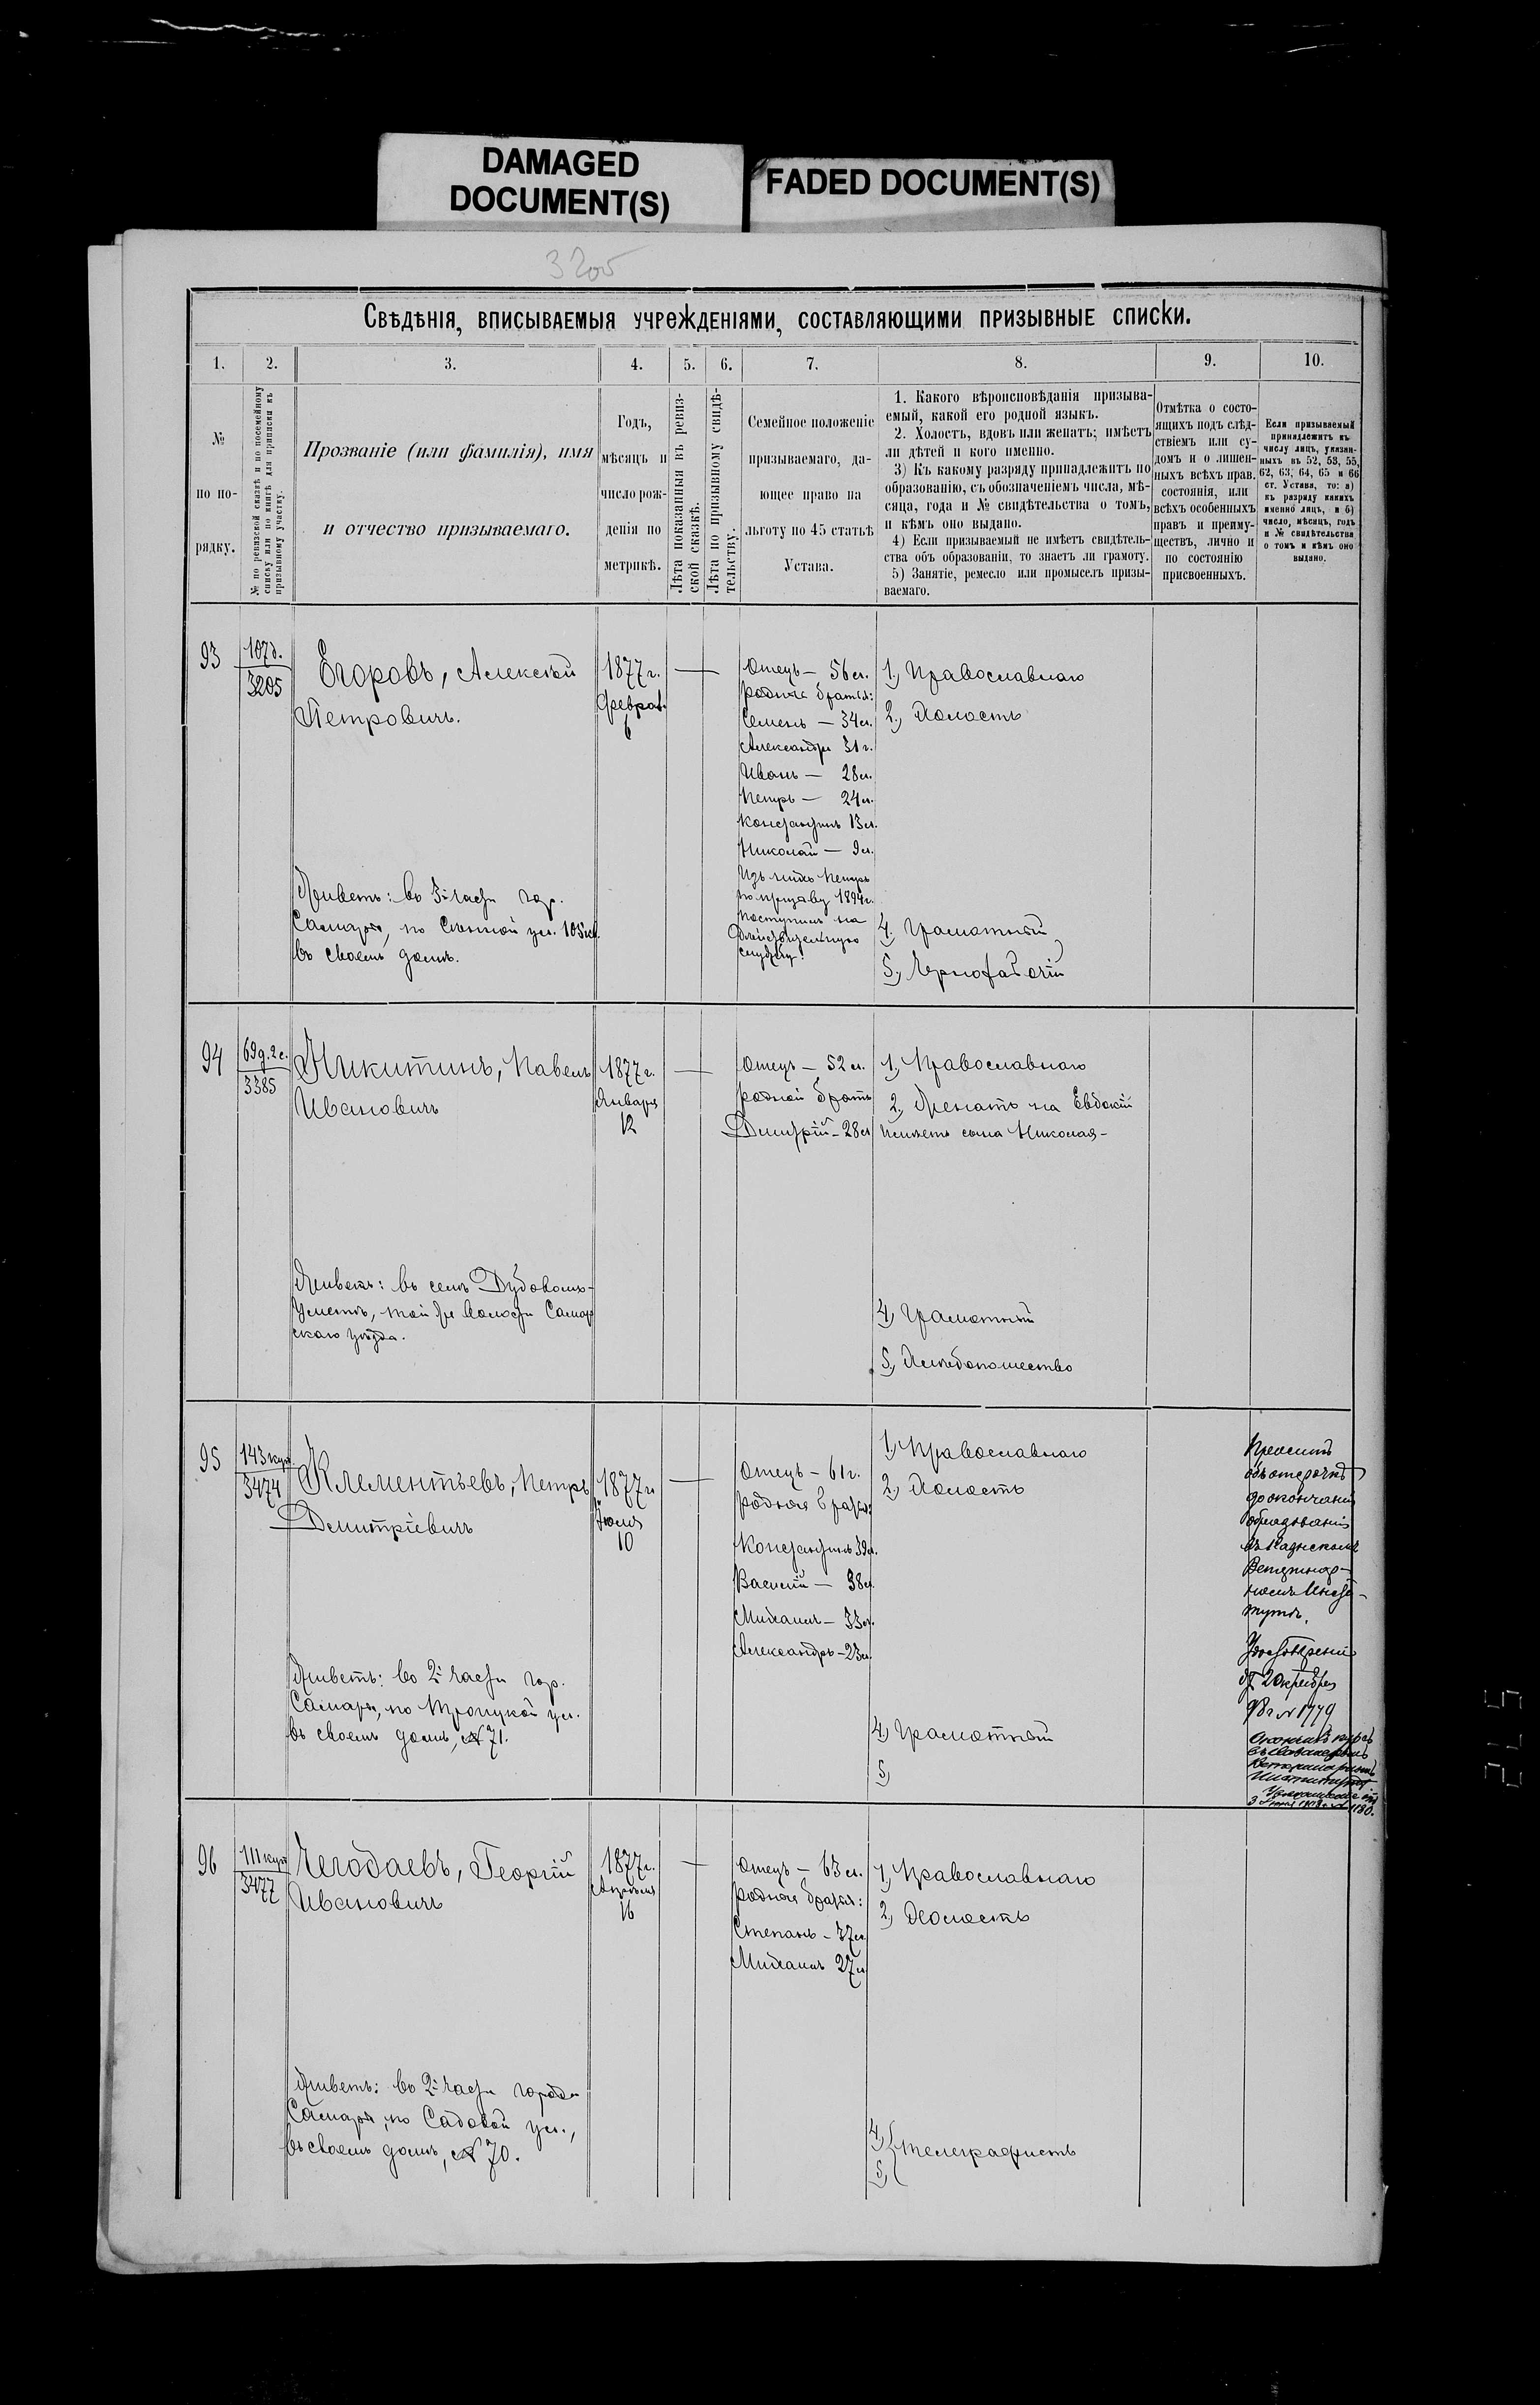 DAMAGED
DOCUMENT(S)
FADED DOCUMENT(S)
3205
Свѣдѣнія, вписываемыя учрежденіями, составляющими призывные списки.
1.
2.
3.
4.
5.
6.
7.
8.
9.
10.
№
по по-
рядку.
№ по ревизской сказкѣ и по посемейному
списку или по книгѣ для приписки къ
призывному участку.
Прозваніе (или фамилія), имя
и отчество призываемаго.
Годъ,
мѣсяцъ и
число рож-
денія по
метрикѣ.
Лѣта показанныя въ ревиз-
ской сказкѣ.
Лѣта по призывному свидѣ-
тельству.
Семейное положеніе
призываемаго, да-
ющее право на
льготу по 45 статьѣ
Устава.
1. Какого вѣроисповѣданія призыва-
емый, какой его родной языкъ.
2. Холостъ, вдовъ или женатъ; имѣетъ
ли дѣтей и кого именно.
3) Къ какому разряду принадлежитъ по
образованію, съ обозначеніемъ числа, мѣ-
сяца, года и № свидѣтельства о томъ,
и кѣмъ оно выдано.
4) Если призываемый не имѣетъ свидѣтель-
ства объ образованіи, то знаетъ ли грамоту.
5) Занятіе, ремесло или промыселъ призы-
ваемаго.
Отмѣтка о состо-
ящихъ подъ слѣд-
ствіемъ или су-
домъ и о лишен-
ныхъ всѣхъ прав.
состоянія, или
всѣхъ особенныхъ
правъ и преиму-
ществъ, лично и
по состоянію
присвоенныхъ.
Если призываемый
принадлежитъ къ
числу лицъ, указан-
ныхъ въ 52, 53, 55,
62, 63, 64, 65 и 66
ст. Устава, то: а)
къ разряду какихъ
именно лицъ, и б)
число, мѣсяцъ, годъ
и № свидѣтельства
о томъ и кѣмъ оно
выдано.
93
107д.
3205
Егоровъ, Алексѣй
Петровичъ.
Живетъ: во 3й части гор.
Самары, по Сѣнной ул. 105
въ своемъ домѣ.
1877г.
Феврал.
6
Отецъ — 56 л.
родные братья:
Семенъ — 34 л.
Александръ 31 г.
Иванъ — 28 л.
Петръ — 24 л.
Константинъ 13 л.
Николай — 9 л.
Изъ нихъ Петръ
по призыву 1894г.
поступилъ на
дѣйствительную
службу.
1, Православнаго
2, Холостъ
4, Грамотный
5, Чернорабочій
94
69д.2с.
3385
Никитинъ, Павелъ
Ивановичъ
Живетъ: въ селѣ Дубовомъ-
Уметѣ, той же волости Самар
скаго уѣзда.
1877г.
Января
12
Отецъ — 52 л.
родной братъ
Димитрій - 28 л
1, Православнаго
2, Женатъ на Евдокіи
имѣетъ сына Николая -
4, Грамотный
5, Хлѣбопашество
95
143 куп.
3474
Клементьевъ, Петръ
Димитріевичъ
Живетъ: во 2й части гор.
Самары, по Троицкой ул.
въ своемъ домѣ, № 71.
1877г
Іюля
10
Отецъ - 61 г.
родные братья:
Константинъ 39 л.
Василій — 38 л.
Михаилъ - 33 г.
Александръ - 23 л
1, Православнаго
2, Холостъ
4, Грамотный
5,
Проситъ
объ отсрочкѣ
до окончанія
образованія
въ Казанскомъ
Ветеринар-
номъ Инсти-
тутѣ.
Удостовѣреніе
от 2 Октября
98 г № 1779
Окончилъ курсъ
въ Казанскомъ
Ветеринарномъ
Институтѣ.
96
111 куп
3477
Чегодаевъ, Георгій
Ивановичъ
Живетъ: во 2й части города
Самары, по Садовой ул.,
въ своемъ домѣ, № 70.
1877г.
Апрѣля
16
Отецъ — 63 л.
родные братья:
Степанъ - 37 л.
Михаилъ 27 л
1, Православнаго
2, Холостъ
4,
5, телеграфистъ
215